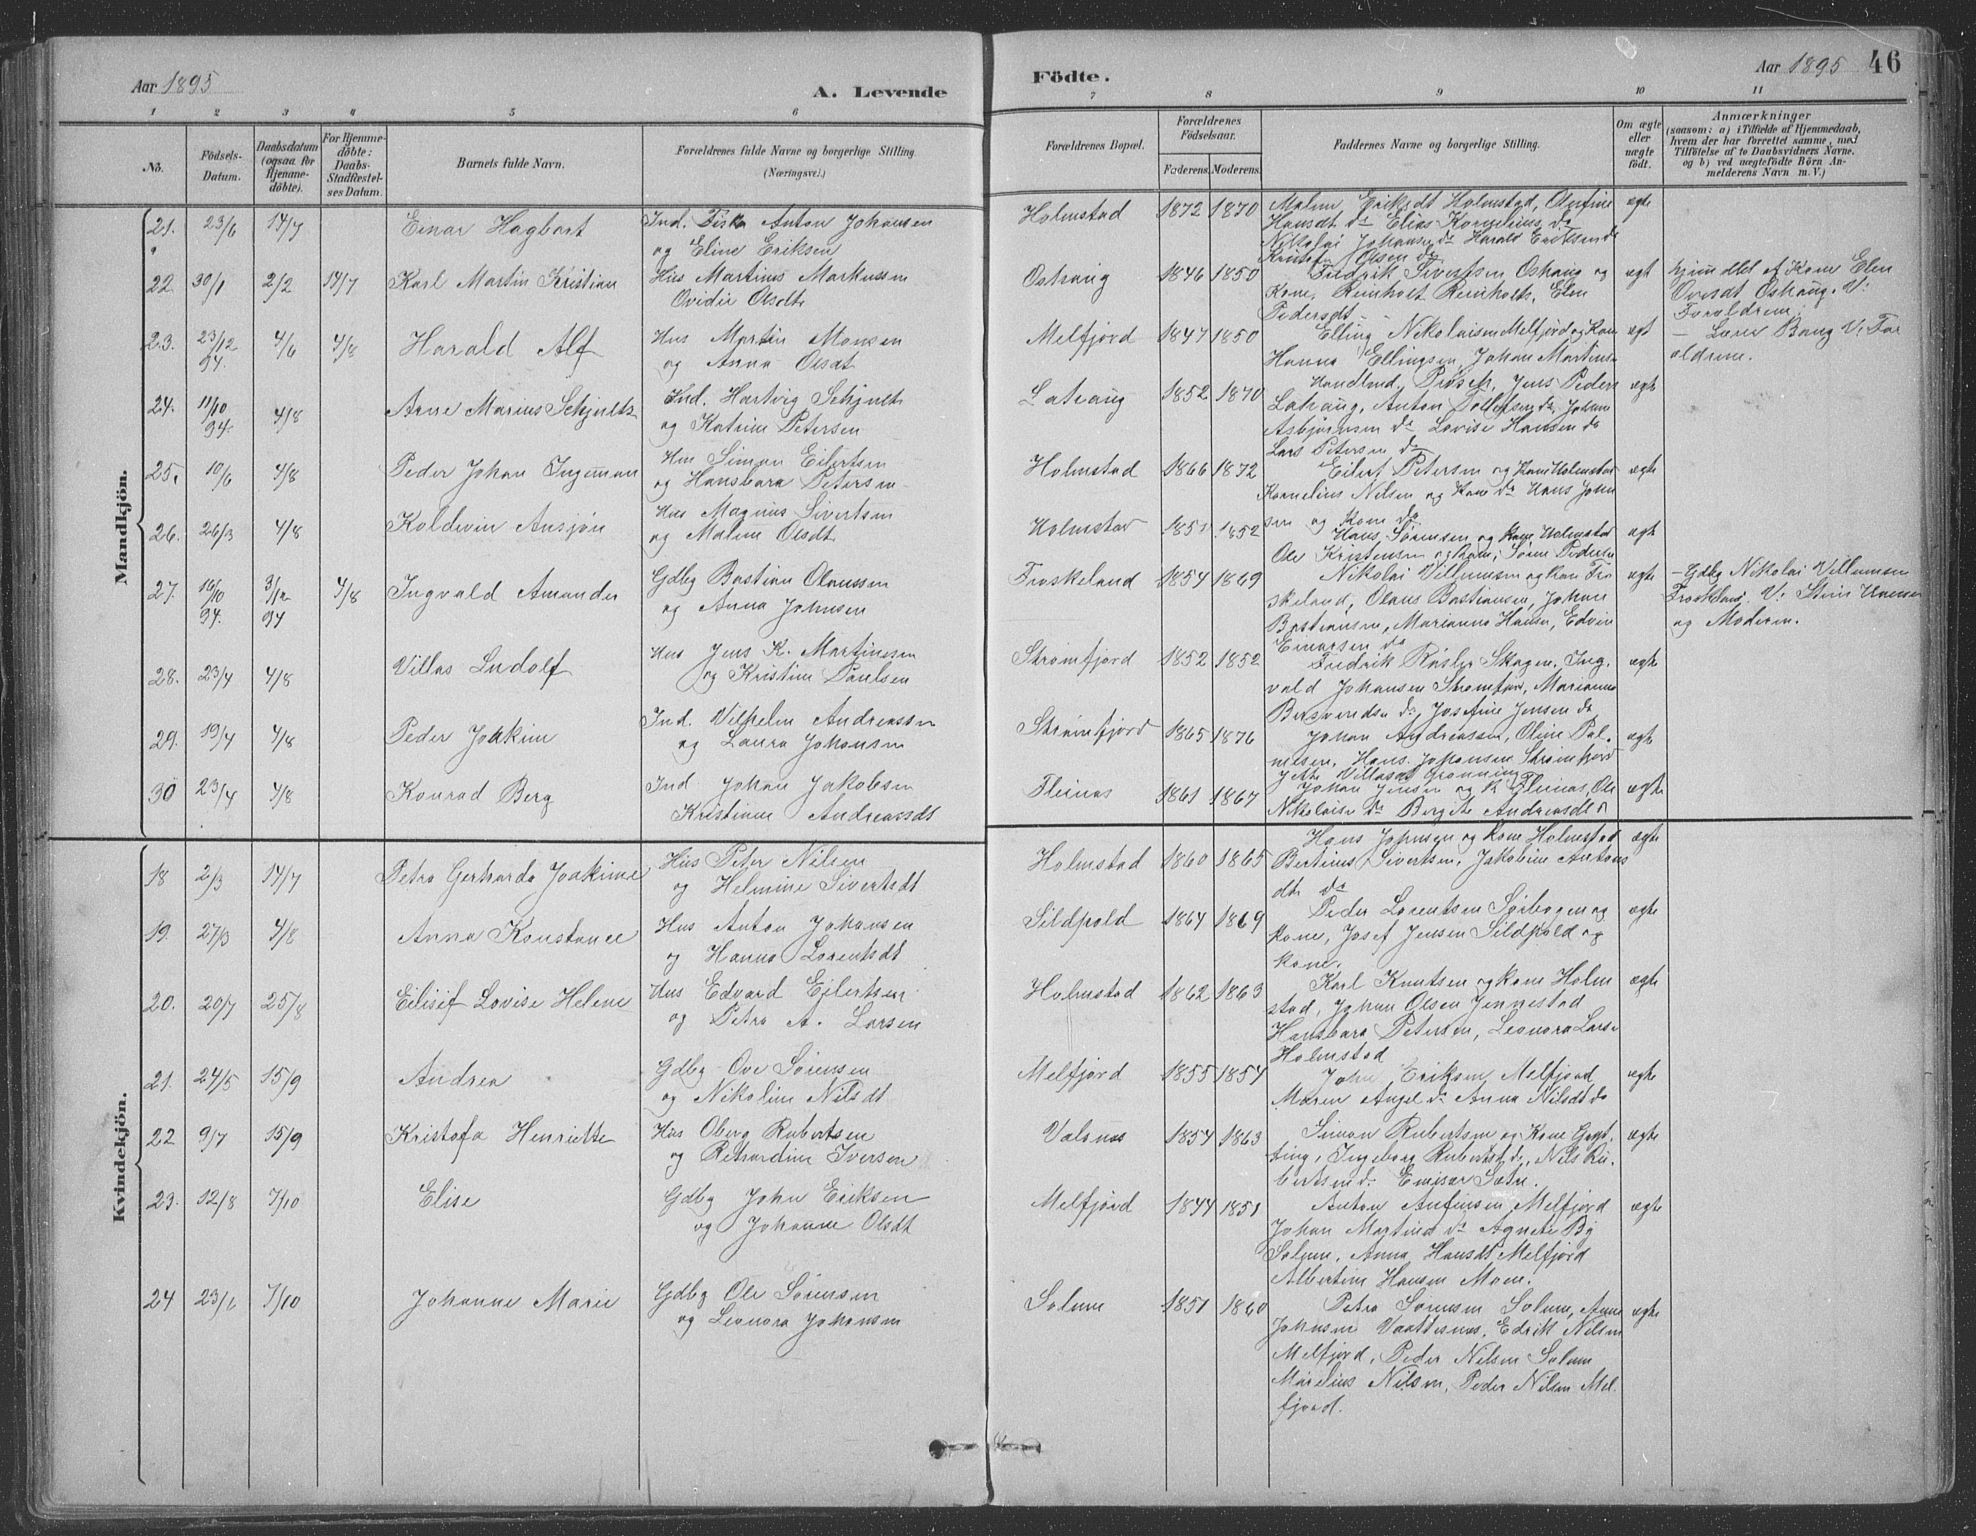 Aar 1895
A. Levende
Födte.
Aar 1895 46
1 2 3 4 5 6 7 8 9 10 11
No.
Födsels-Datum.
Daabsdatum (ogsaa for Hjemme-döbte).
For Hjemme-döbte: Daabs-Stadfæstel-ses Datum.
Barnets fulde Navn.
Forældrenes fulde Navne og borgerlige Stilling. (Næringsvei.)
Forældrenes Bopæl.
Forældrenes Födselsaar.
Faderens. Moderens.
Faddernes Navne og borgerlige Stilling.
Om ægte eller uægte födt.
Anmærkninger
(saasom: a) i Tilfælde af Hjemmedaab, hvem der har forrettet samme, med Tilföielse af to Daabsvidners Navne. og b) ved uægtefödte Börn An-melderens Navn m. V.)
Mandkjön.
21. 23/6 14/7 Einar Hagbart
Ind. Fisk Anton Johansen
og Eline Eriksen
Holmstad 1872 1870
Malin Eriksdt Holmstad, Olufine
Hansdt do Elias Kornelius do
Nikolai Johansen do Harald Eriksen do
Kristofer Olsen do
ægte
22. 30/1 2/2 14/7 Karl Martin Kristian
Hus Martinus Markussen
Ovidie Olsdt
Oshaug 1846 1850
Fredrik Sivertsen Oshaug og
Kone, Reinholt Reinholts, Elen
Pedersdt
ægt
hjemdbt af Kone Elen
Ovesdt Oshaug. V:
Forældrene.
23. 23/12 94. 4/6 4/8 Harald Alf
Hus Martin Monsen
og Anna Olsdt
Melfjord 1847 1850
Elling Nikolaisen Melfjord og Kone
Hanna Ellingsen, Johan Martins
ægt
– Lærer Bang V. For
ældrene.
24. 11/10 94. 4/8 Arne Marius Schjnelts
Ind. Hartvig Schjnelt
og Katrine Petersen
Lahaug 1852 1870
Handlend. Prøsch, Jens Peders
Lahaug, Anton Tollefsen do, Johan
Asbjørnsen do Lovise Hansen do
Lars Petersen do
ægte
25. 10/6 4/8 Peder Johan Ingeman
Hus Simon Eilertsen
og Hansbara Petersen
Holmstad 1866 1872
Eilert Petersen og Kone Holmstad
Kornelius Nilsen og Kone do Hans John
sen og Kone do
ægte
26. 26/3 4/8 Koldevin Ansjøn
Hus Magnus Sivertsen
og Malene Olsdt
Holmstad 1851 1852
Hans Sørensen og Kone Holmstad
Ole Kristensen og kone, Søren Pedersen
ægt
27. 10/10 94. 3/12 94 4/8 Ingvald Amandus
Gdbg Bastian Olaussen
og Anna Johnsen
Froskeland 1854 1869
Nikolai Villumsen og kone Fro
skeland, Olaus Bastiansen, Johan
Bastiansen, Marianna Hansen, Edvin
Einarsen do
ægte
– Gdbg Nikolai Villumsen
Froskeland. V: Stine Hansen
og Moderen.
28. 23/4 4/8 Villas Ludolf
Hus Jens K. Martinussen
og Kristine Paulsen
Strømfjord 1852 1852
Fredrik Røsler Skagen, Ing.
vald Johansen Strømfjor, Marianna
Benvendse do, Josefine Jensen do
ægte
29. 19/4 4/8 Peder Joakim
Ind. Vilhelm Andreassen
og Laura Johansen
Strømfjord 1865 1876
Johan Andreassen, Oline Pal.
nesen, Hans Johansen Strømfjord
Jette Villasdt Grønning
ægte
30 23/4 4/8 Konrad Berg
Ind Johan Jakobsen
Kristiane Andreasdt
Fleinas 1861 1867
Johan Jensen og K Fleinas, Ole
Nikolaisen do Bergite Andreasdt do
ægte
Kvindekjön.
18 2/3 14/7 Petra Gerharda Joakime
Hus Peter Nilsen
og Helmine Sivertsdt
Holmstad 1860 1865
Hans Johnsen og Kone Holmstad
Bertinus Sivertsen, Jakobine Antons
dtr do
ægte
19. 27/3 4/8 Anna Konstance
Hus Anton Johansen
og Hanna Lorentsdt
Sildpold 1864 1869
Peder Lorentsen Sørbogen og
kone, Josef Jensen Sildpold og
kone.
ægte
20. 20/7 25/8 Eilisif Lovise Helene
Hus Edvard Eilertsen
og Petra A. Larsen
Holmstad 1862 1863
Karl Knutsen og kone Holm
stad, Johan Olsen Jennestad
Hansbara Petersen, Leonora Larse
Holmstad
ægte
21. 24/5 15/9 Andrea
Gdbg Ove Sørensen
og Nikoline Nilsdt
Melfjord 1855 1854
John Eriksen Melfjord
Maren Angel do Anna Nilsdt do
ægte
22 9/7 15/9 Kristofa Henriette
Hus Oberg Rubertsen
og Rikardine Iversen
Valsnes 1854 1863
Simon Rubertsen og Kone Gust.
ting, Ingeborg Rubertsdt do, Nils Ru.
bertsen do Einar Sætre.
ægte
23. 12/8 7/10 Elise
Gdbg John Eriksen
og Johanne Olsdt
Melfjord 1844 1851
Anton Anfinsen Melfjord
Johan Martins do Agnete By
Solum, Anna Hansdt Melfjord
Albertine Hansen Moen.
ægte
24 23/6 7/10 Johanne Marie
Gdbg Ole Sørensen
og Leonora Johansen
Solum 1851 1860
Petra Sørensen Solum, Anne
Johnsen Vaattesnes, Edrik Nilsen
Melfjord, Peder Nilsen Solum
Marelius Nilsen, Peder Nilsen Mel
fjord.
ægte